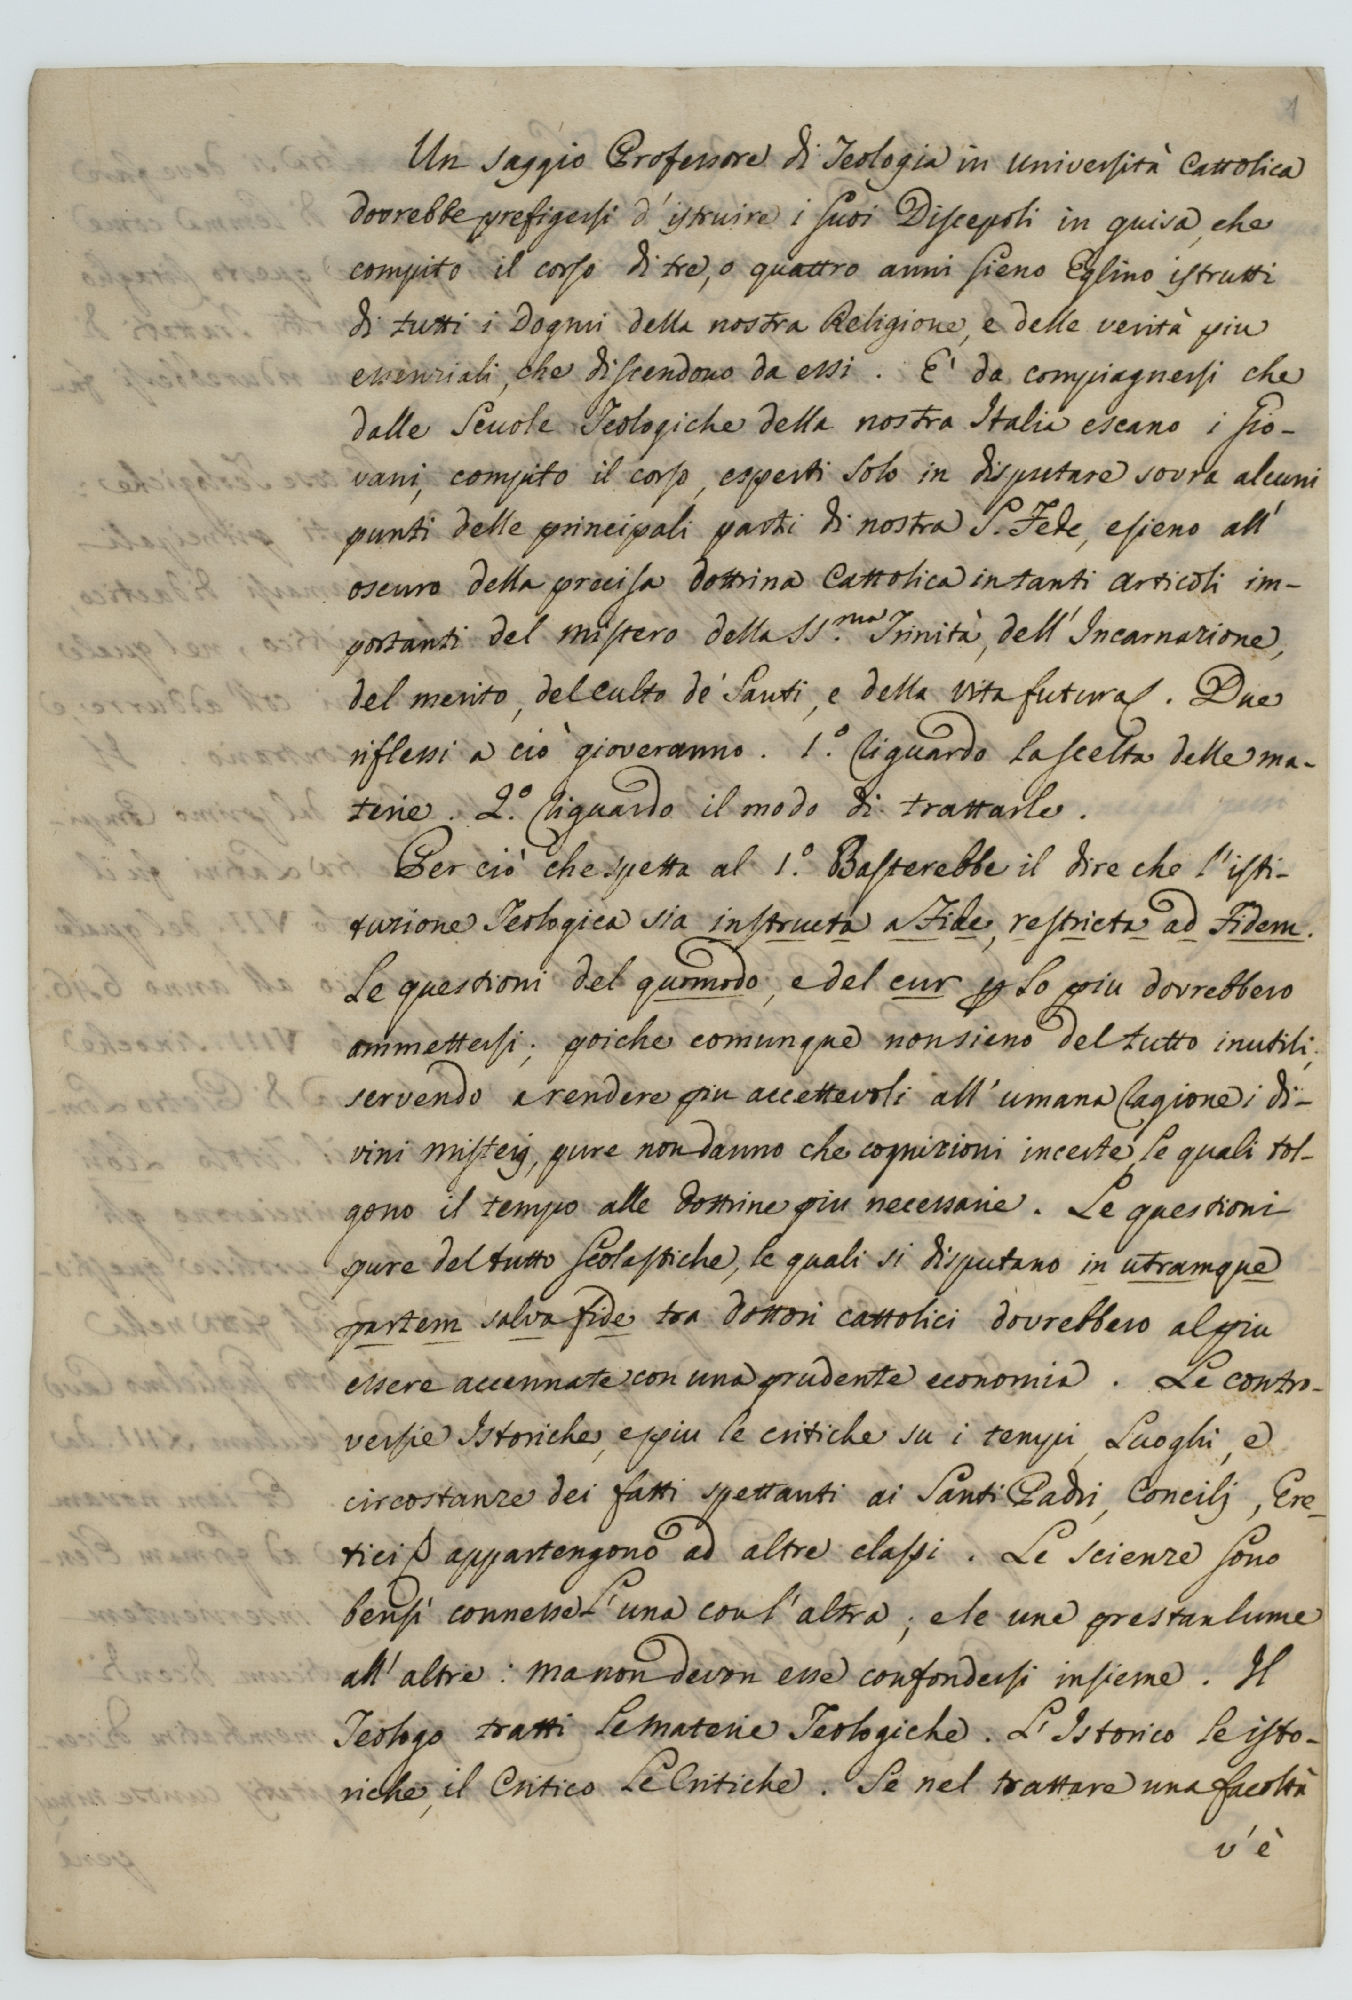 1
Un saggio Professore di Teologia in università Cattolica
dovrebbe prefigersi d'istruire i suoi Discepoli in guisa, che
compito il corso di tre, o quattro anni sieno Eglino istrutti
di tutti i Dogmi della nostra Religione, e delle verità piu
essenziali, che discendono da essi. E' da compiagnersi che
dalle Scuole Teologiche della nostra Italia escano i Gio-
vani, compito il corso, esperti solo in disputare sovra alcuni
punti delle principali parti di nostra S. Fede, e sieno all'
oscuro della precisa dottrina Cattolica in tanti articoli im-
portanti del mistero della SS.ma Trinità, dell'Incarnazione,
del merito, del culto de' Santi, e della vita futura. Due
riflessi a ciò gioveranno. 1.° Riguardo la scelta delle ma-
terie. 2.° Riguardo il modo di trattarle.
Per ciò che spetta al 1.° Basterebbe il dire che l'isti-
tuzione Teologica sia instructa a Fide, restricta ad Fidem.
Le questioni del quomodo, e del cur p lo piu dovrebbero
ommettersi; poiche comunque non sieno del tutto inutili,
servendo a rendere piu accettevoli all'umana Ragione i di-
vini misterj, pure non danno che cognizioni incerte, le quali tol-
gono il tempo alle dottrine piu necessarie. Le questioni
pure del tutto Scolastiche, le quali si disputano in utramque
partem salva fide tra dottori cattolici dovrebbero al piu
essere accennate con una prudente economia. Le contro-
versie Istoriche, e piu le critiche su i tempi, Luoghi, e
circostanze dei fatti spettanti ai Santi Padri, Concilj, Ere-
tici appartengono ad altre classi. Le scienze sono
bensì connesse l'una con l'altra; e le une prestan lume
all'altre: ma non devon esse confondersi insieme. Il
Teologo tratti le materie Teologiche. L'Istorico le isto-
riche, il Critico le Critiche. Se nel trattare una facoltà
v'è